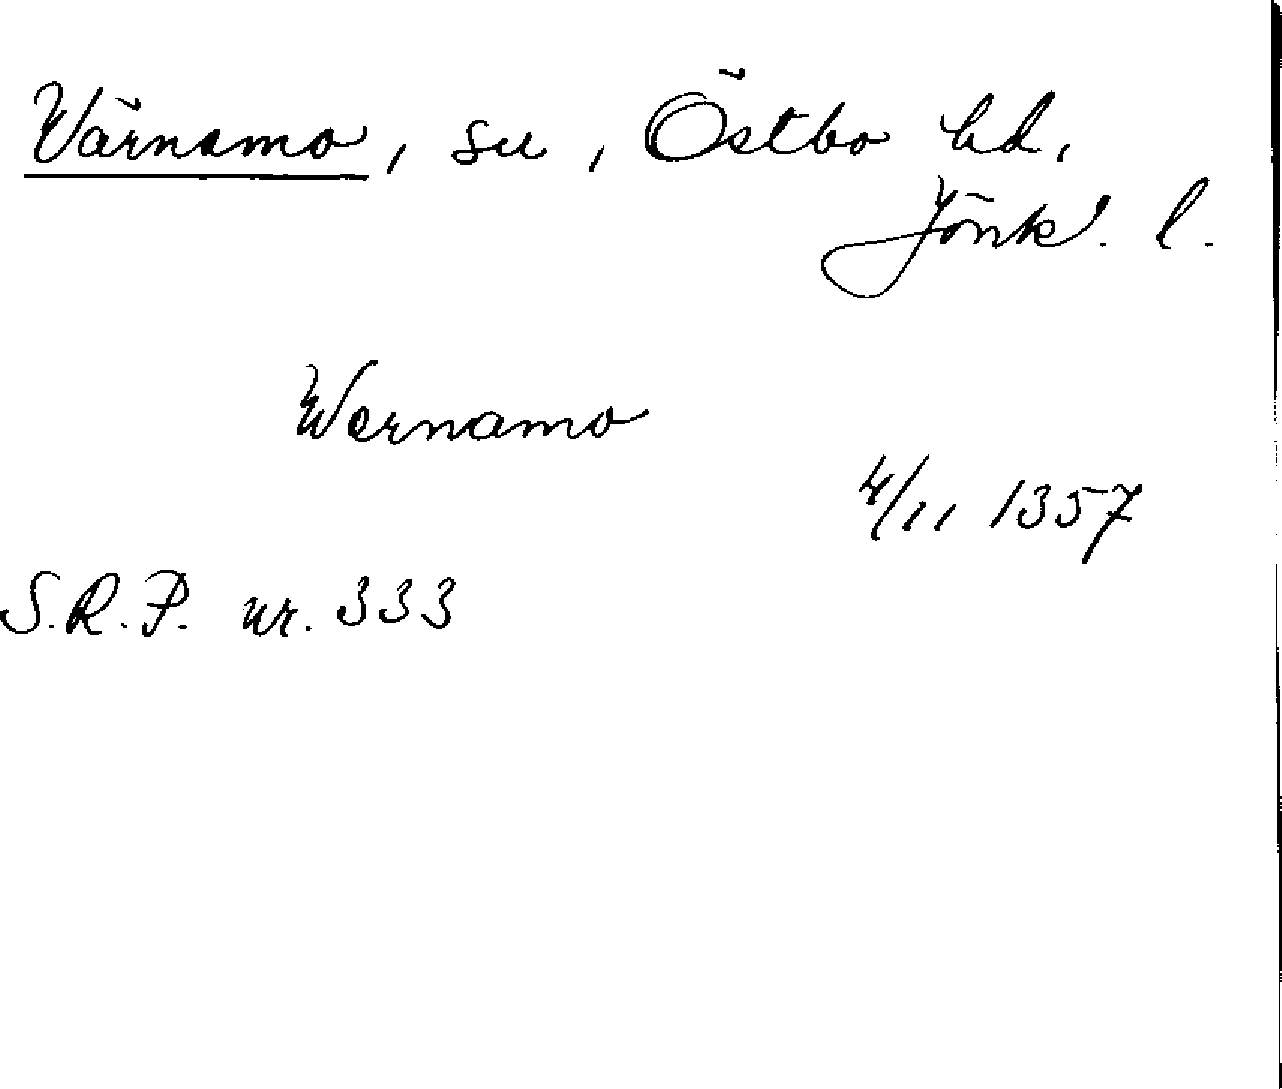 Värnamo, sn, Östbo hd,
Jönk. l.
Wernamo
4/11 1357
S.R.P. nr. 333